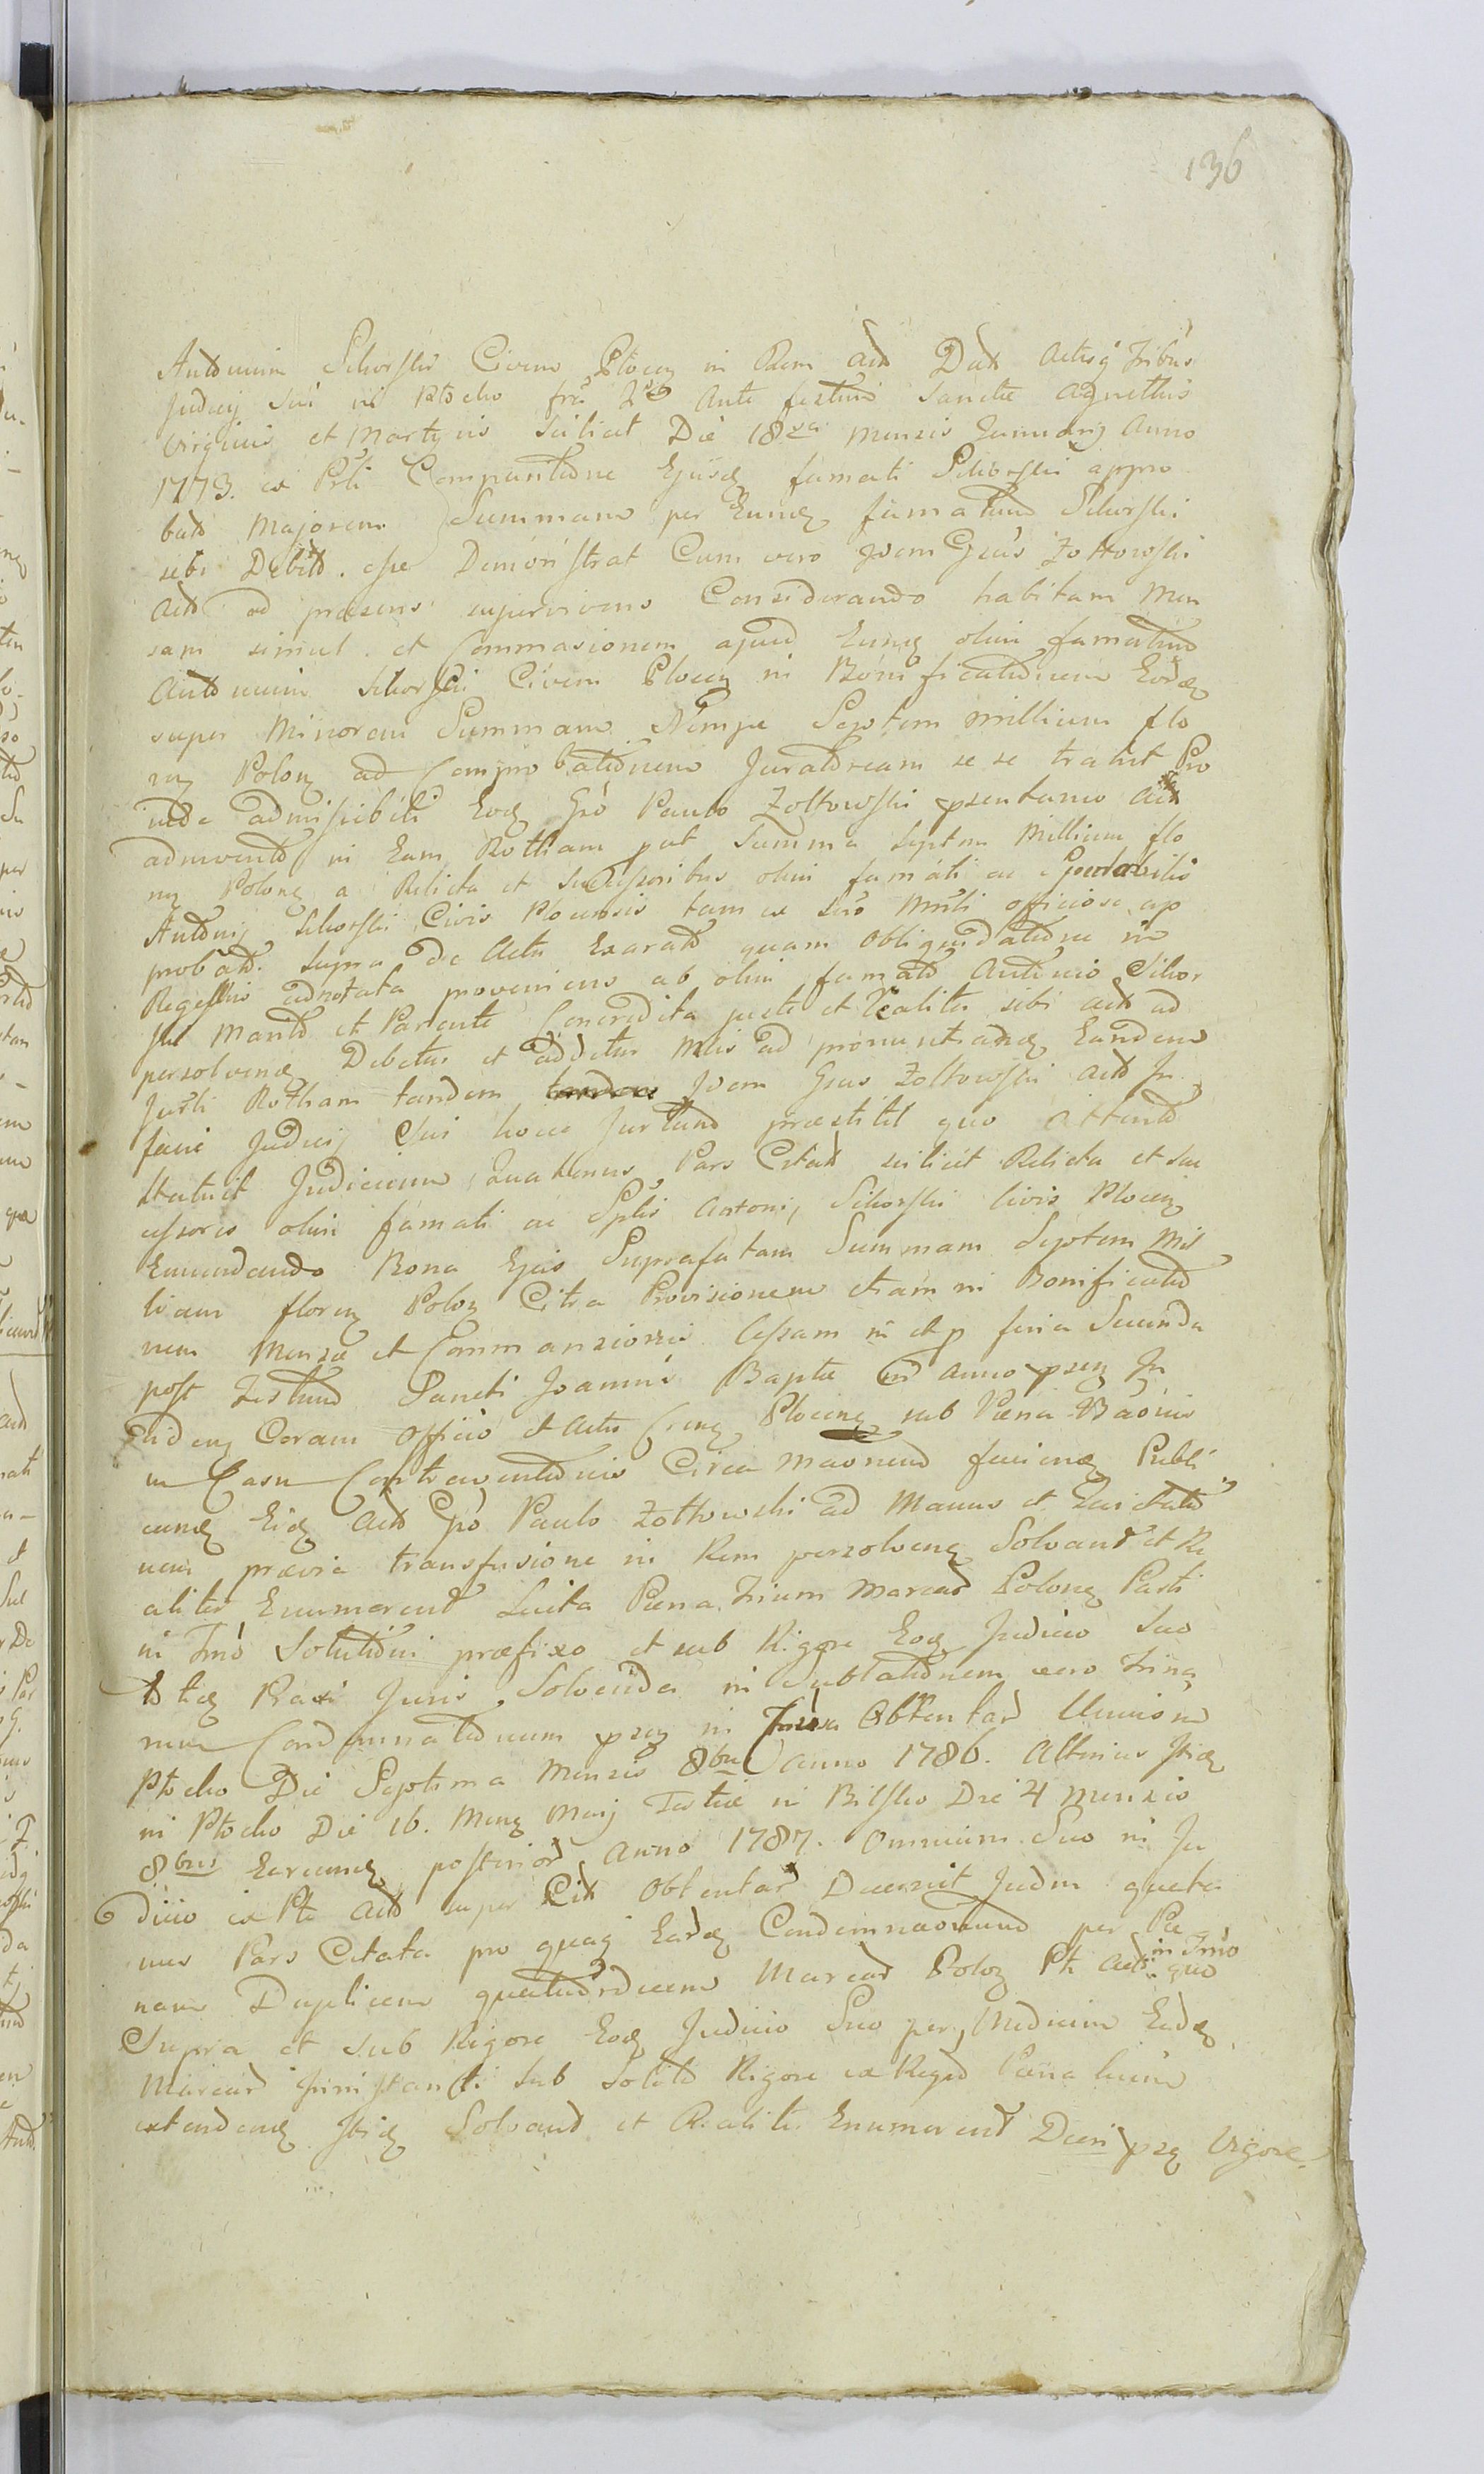 136
Antonium Sikorski Civem Plocen in Rem act Dat actisq
Judicij sui in Ptocko fra 2da Ante festum Sanctæ Agnethis
Virginis et Martyris scilicet Die 18va mensis Januarij Anno
1773. ex Pti Comparitione Ejusd famati Sikorski appro
bat Majorem Summam per Eund famatum Sikorski
sibi Debit. esse Demonstrat Cum vero Idem Gsus Zoltowski
act ad præsens supervivens Considerando habitam Men
sam simul. et Commasionem apud Eund olim famatum
Antonium Sikorski Civem Plocen in Bonificationem Eord
super Minorem Summam Nempe Septem millium flo
ren Polon ad Comprobationem Juratoream se se trahit Pro
inde admissibili Eod Gso Paulo Zoltowski psentaneo act
ad in Eam Rotham put Summa Septem Millium flo
ren Polon a Relicta et Successoribus olim famati ac Spectabilis
Antonij Sikorski Civis Plocensis tam ex officiose ap
probat. supra de Actu Exarato quam Obliquidatione in
Regestris adnotata proveniens ab olim famato Antonio Sikor
ski Marito et Parente Concredita juste et realiter sibi act ad
persolvend Debetur et additur ad pronuntiand Eandem
Jurti Rotham tandem Idem Gsus Zoltowski act In
facie Judicij Sui hocce Jurtum præstitit quo attento
Statuit Judicium Quatenus Pars Citat scilicet Relicta et suc
cessores olim famati ac Sptis Antonij Sikorski Civis Plocen
Emundando Bona Ejus Suprafatam Summam Septem Mil
lium floren Polon Citra Provisionem etiam in Bonificatio
nem Mensæ et Commansionis Cessam in et p feria Secunda
post Festum Sancti Joannis Baptæ in anno psen In
ciden Coram Officio et Actis Plocen sub Pæna Baonis
in Casu Contraventionis Circa faciend Publi
cand Eid act Gso Paulo Zoltowski ad Manus et Quietatio
nem prævia transfusione in Rem persolvend Solvant et Re
aliter Enumerent Luita Pæna Trium Marcar Polon Parti
in Tmo Solutioni præfixo et sub Rigore Eod Judicio Suo
Itid Paxi Juris Solvenda in Sublationem vero Trina
rum Condemnationum psen in Obtentar Unius in
Ptocko Die Septima Mensis 8bris Anno 1786. Alterius Itid
in Ptocko Die 16. Mens Maij Tertiæ in Bilsko Die 4 Mensis
8bris Earumd posterior Anno 1787. Omnium Suo in Ju
dicio ex Pte act super Cit Obtentar Decernit Judm quate
nus Pars Citata pro quaq Eard Condemnaonum per Pæ
nam Duplicem quatuordecem Marcar Polon Pti act in Tmo quo
Supra et sub Rigore Eod Judicio Suo per Medium Eard
Marcar sub Solito Rigore ex Regro Pæna
extendend Itid Solvant et Realiter Enumerent Decri psen Vigore.